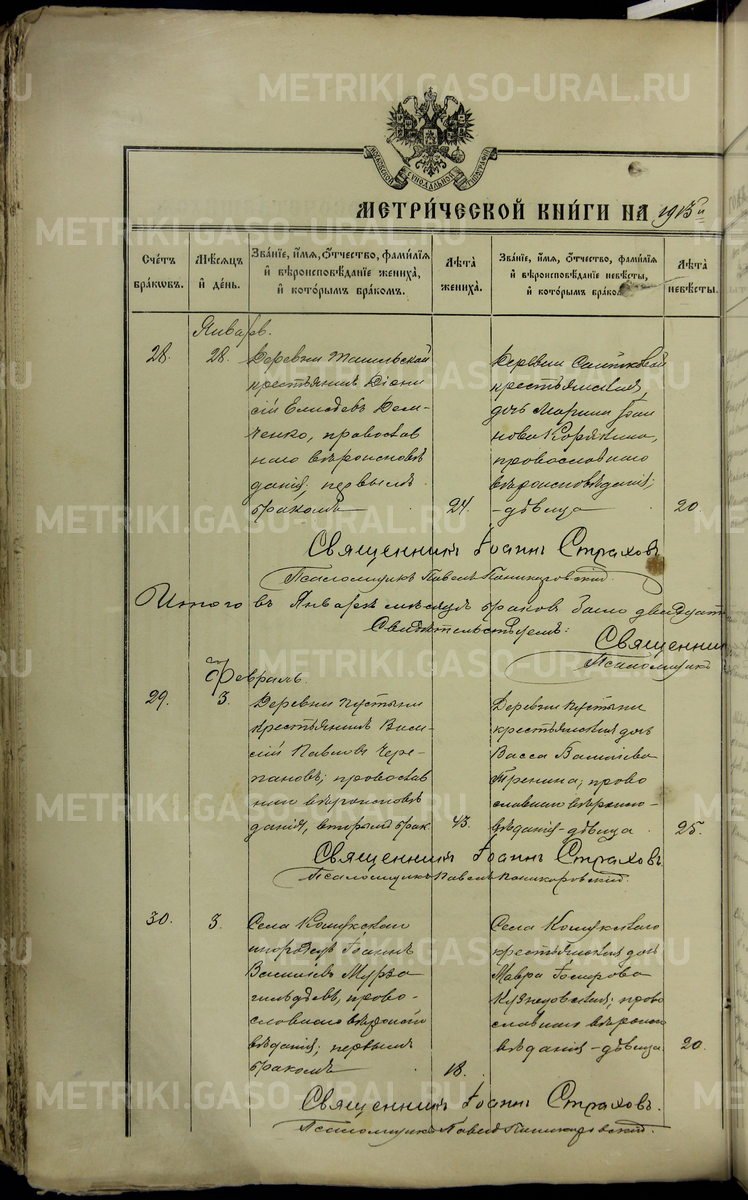 METRIKI.GASO-URAL.RU
МОСКОВСКОЙ СѴНОДАЛЬНОЙ ТИПОГРАФІИ
МЕТРИ́ЧЕСКОЙ КНИ́ГИ НА 1913 й
Сче́тъ бра́кѡвъ.
Мѣ́сяцъ и҆ де́нь.
Зва́ніе, и҆́мя, ѻ҆́тчество, фами́лїя
и҆ вѣроисповѣ́данїе жениха̀,
и҆ кото́рымъ бра́комъ.
Лѣ́та жениха̀.
Зва́ніе, и҆́мя, ѻ҆́тчество, фами́лїя
и҆ вѣроисповѣ́данїе невѣ́сты,
и҆ кото́рымъ бра́ко
Лѣ́та невѣ́сты.
Январь.
28.
28.
Деревни
крестьянинъ Діони
сій Елисѣевъ Дем-
ченко, православ
наго вѣроисповѣ
данія, первымъ
бракомъ
24.
Деревни
крестьянская
дочь Марина Іоан
нова Корякина,
православнаго
вѣроисповѣданія;
-дѣвица
20
Священникъ Іоаннъ Страховъ
Псаломщикъ Павелъ
Итого въ Январѣ мѣсяцѣ браковъ было двадцать
Свидѣтельствуемъ:
Священни
Псаломщикъ
Февраль.
29.
3.
Деревни Пустыни
крестьянинъ Васи
лій Павловъ Чере-
пановъ; православ
наго вѣроисповѣ
данія, вторымъ брак.
43.
Деревни Пустыни
крестьянская дочь
Васса Васильева
Тренина; право
славнаго вѣроиспо-
вѣданія-дѣвица
25.
Священникъ Іоаннъ Страховъ
Псаломщикъ Павелъ
30.
3.
Села Кошукскаго
инородецъ Іоаннъ
Василіевъ Мурза
гильдѣевъ, право-
славнаго вѣроиспо
вѣданія; первымъ
бракомъ
18.
Села Кошукскаго
крестьянская дочь
Мавра
право
славнаго вѣроиспо
вѣданія-дѣвица
20.
Священникъ Іоаннъ Страховъ.
Псаломщикъ Павелъ